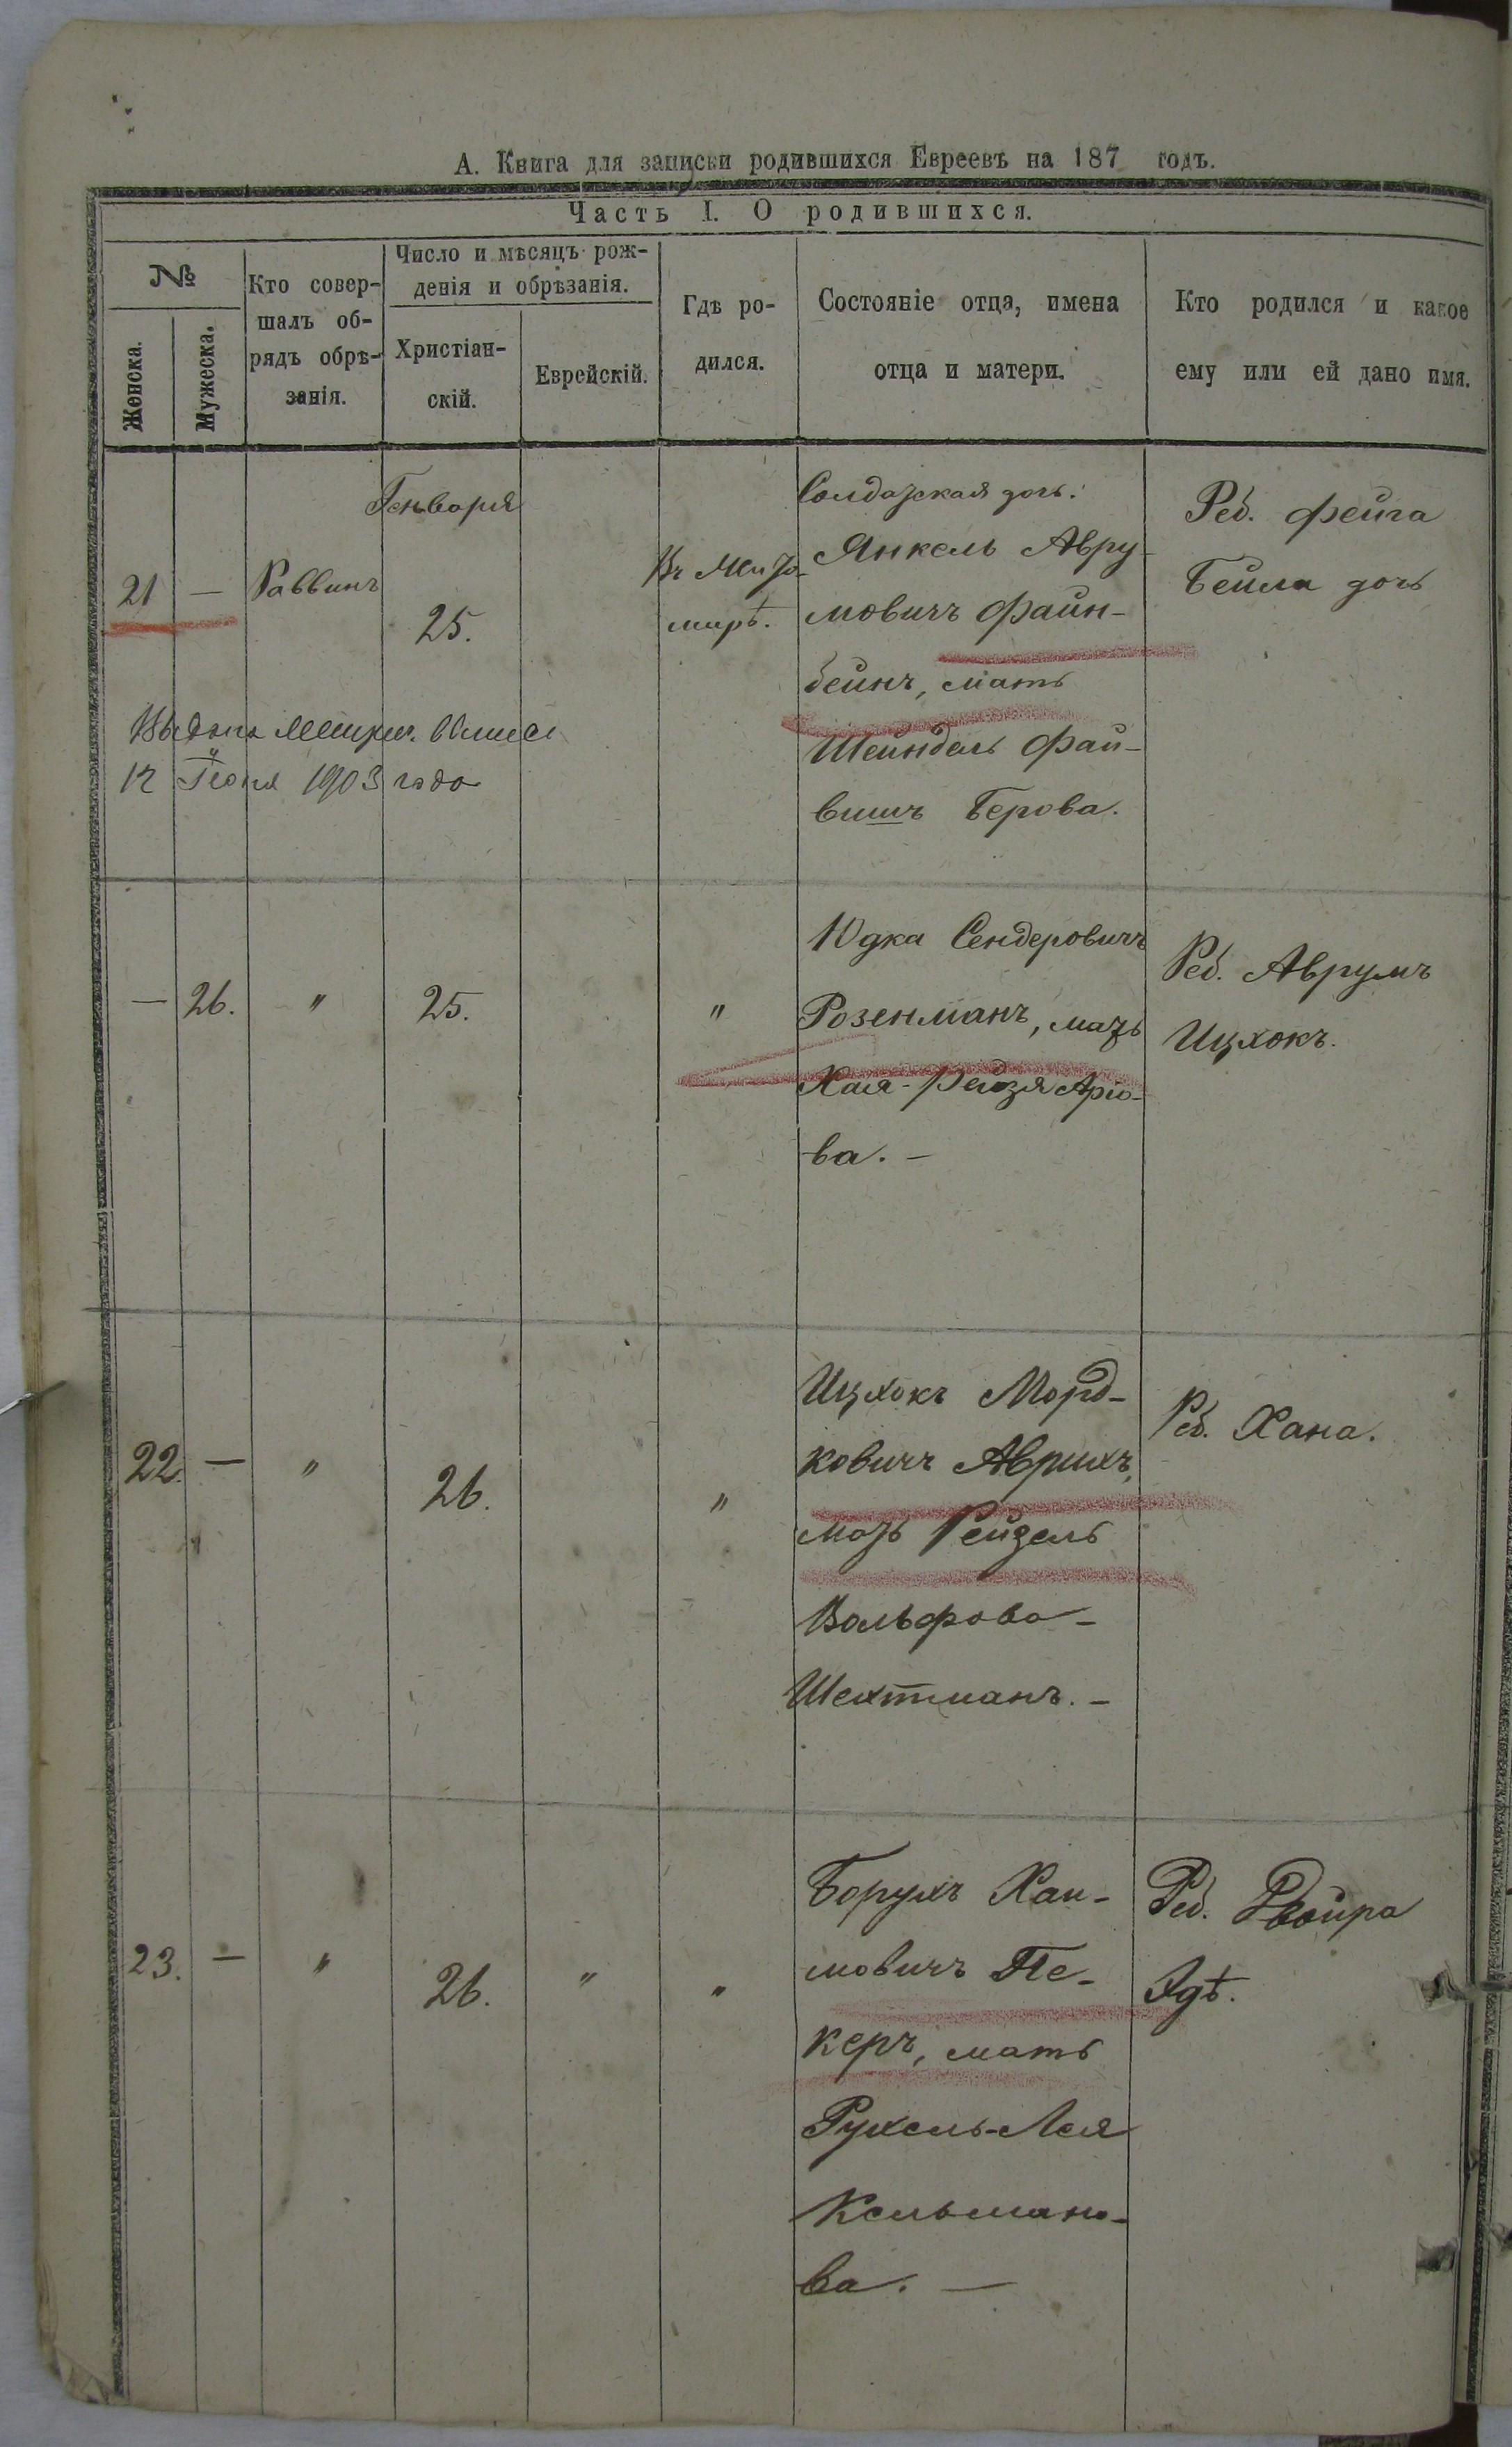 А. Книга для записки родившихся Евреевъ на 187 годъ.
Часть I. О родившихся.
№
Женска.
Мужеска.
Кто совер-
шалъ об-
рядъ обрѣ-
занія.
Число и мѣсяцъ рож-
денія и обрѣзанія.
Христіан-
скій.
Еврейскій.
Гдѣ ро-
дился.
Состояніе отца, имена
отца и матери.
Кто родился и какое
ему или ей дано имя.
21
—
Раввинъ
Генваря
25.
Въ Жито-
мирѣ.
Солдатская дочь.
Янкель Авру-
мовичъ Файн-
бейнъ, мать
Шейндель Фай-
вишъ Берова.
Реб. Фейга
Бейла дочь
Выдана Метрич. Выпись
12 Іюня 1903 года
—
26.
"
25.
"
Юдка Сендеровичъ
Розенманъ, мать
Хая-Рейзя Аріо-
ва. —
Реб. Аврумъ
Ицхокъ.
22
—
"
26.
"
Ицхокъ Морд-
ковичъ Аврихъ,
мать Рейзель
Вольфова-
Шехтманъ. —
Реб. Хана.
23.
—
"
26.
"
"
Борухъ Хаи-
мовичъ Пе-
керъ, мать
Рухель-Лея
Кельмано-
ва. —
Реб. Двойра